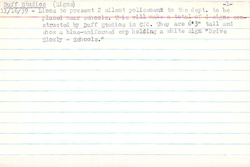 Duff Studios (Signs) -1-
11/16/39 - Lions to present 2 silent policemen to the dept. to be
placed near schools. This will make a total of 4 signs con-
structed by Duff Studios in CRC. They are 6'3" tall and
show a blue-uniformed cop holding a white sign "Drive
Slowly - Schools."